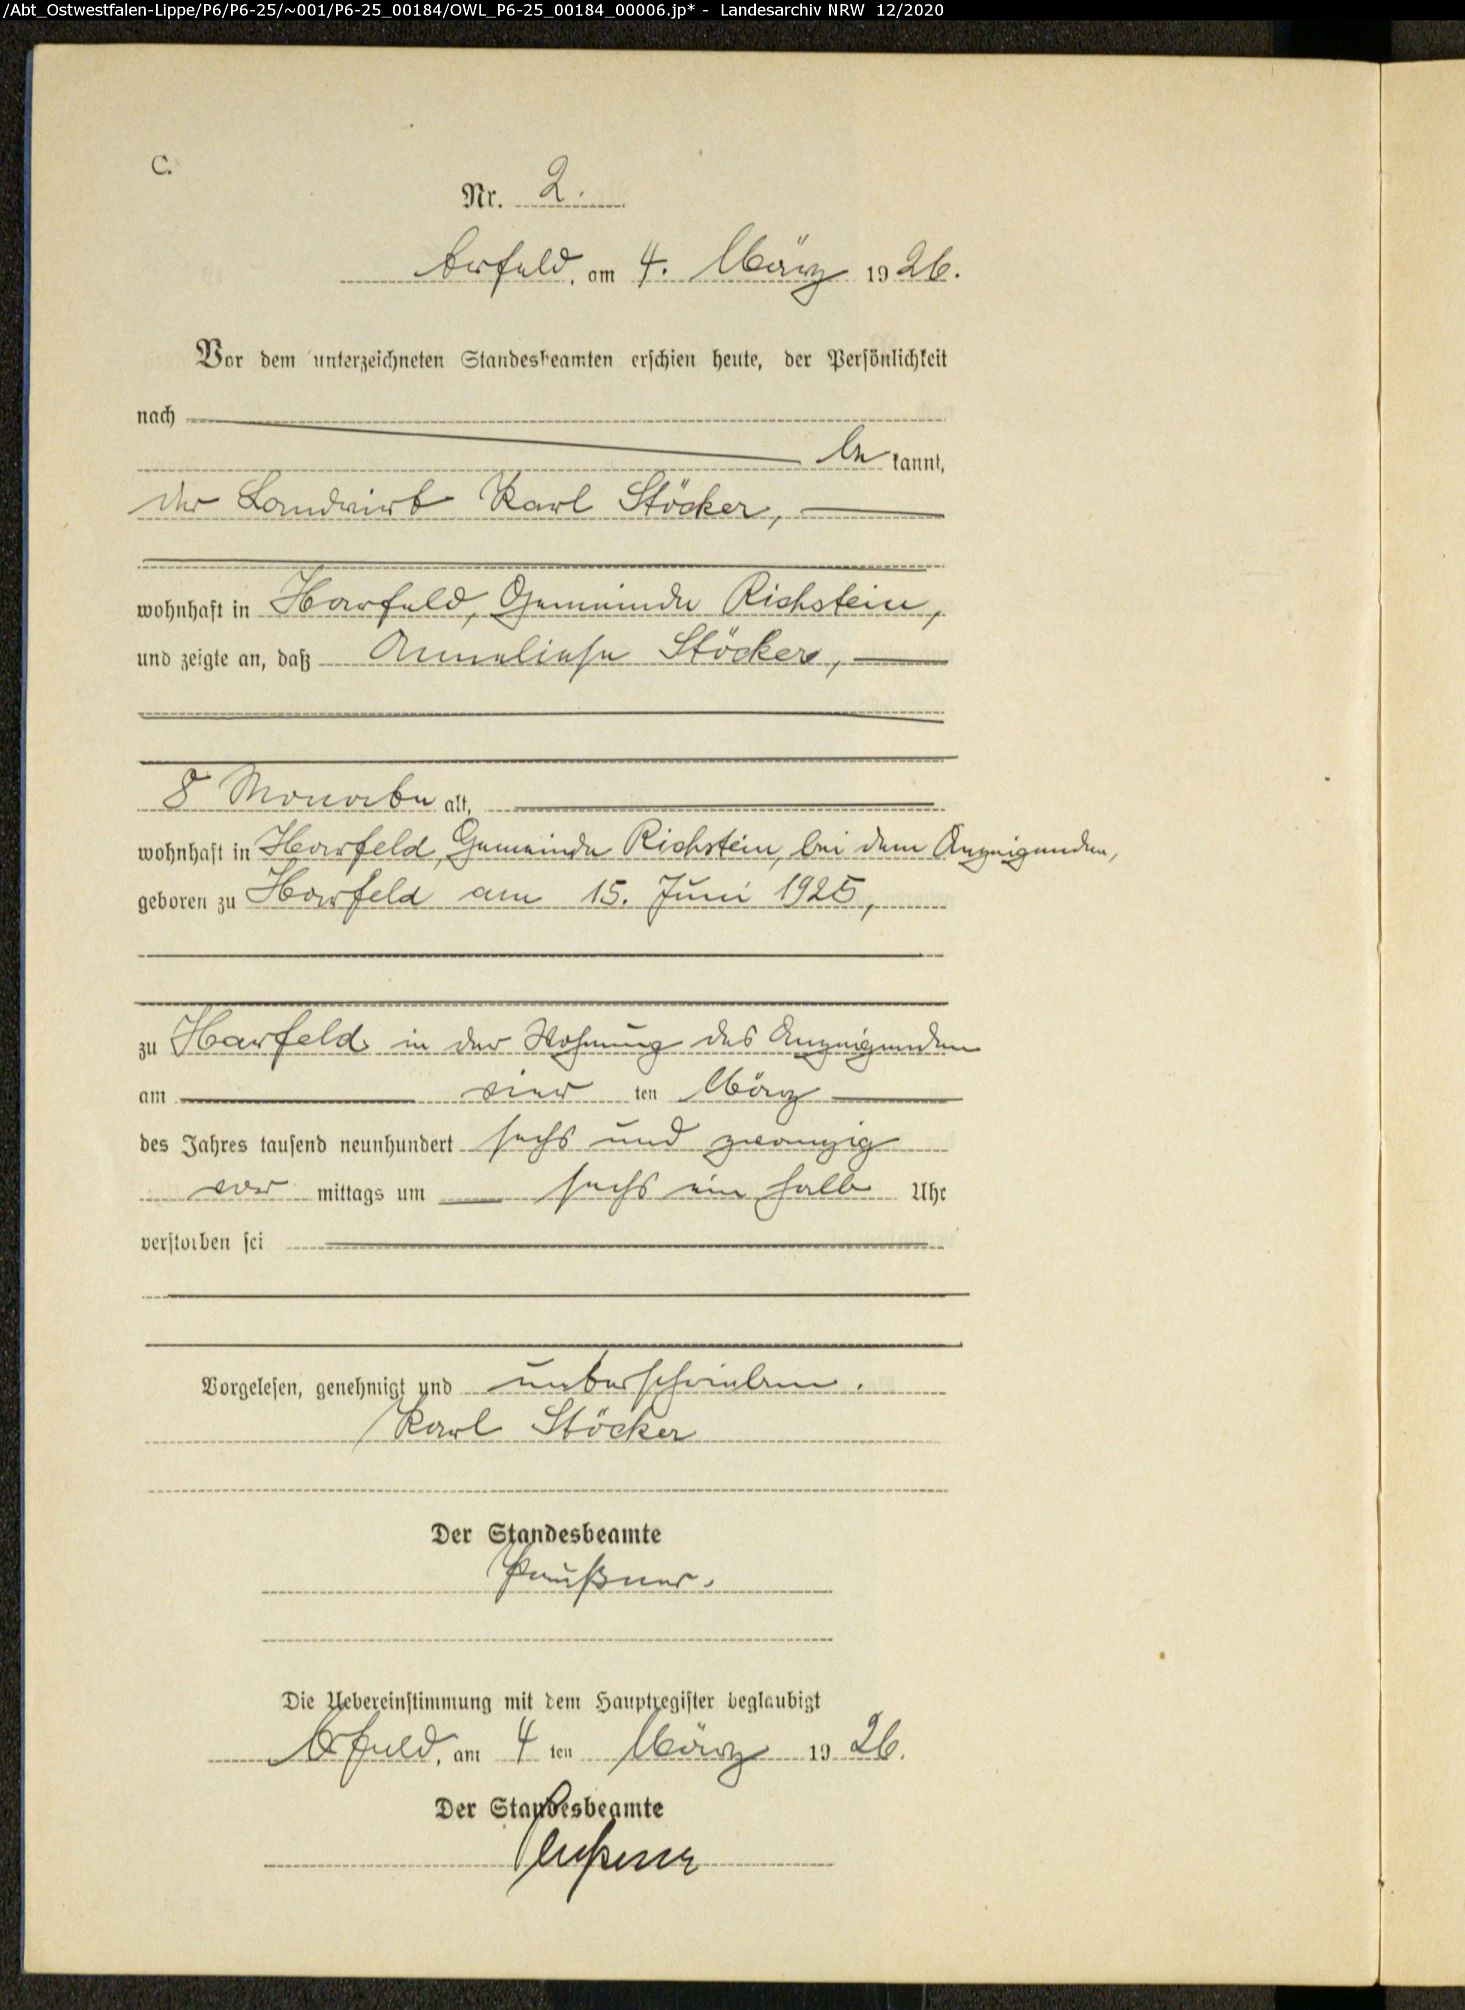 /Abt_Ostwestfalen-Lippe/P6/P6-25/~001/P6-25_00184/OWL_P6-25_00184_00006.jp* - Landesarchiv NRW 12/2020
C.
Nr. 2.
Arfeld, am 4. März 1926.
Vor dem unterzeichneten Standesbeamten erschien heute, der Persönlichkeit
nach
be kannt,
der Landwirt Karl Stöcker,
wohnhaft in Harfeld, Gemeinde Richstein,
und zeigte an, daß Anneliese Stöcker,
8 Monate alt,
wohnhaft in Harfeld, Gemeinde Richstein, bei dem Anzeigenden,
geboren zu Harfeld am 15. Juni 1925,
zu Harfeld in der Wohnung des Anzeigenden
am vier ten März
des Jahres tausend neunhundert sechs und zwanzig
vor mittags um sechs ein halb Uhr
verstorben sei
Vorgelesen, genehmigt und unterschrieben.
Karl Stöcker
Der Standesbeamte
Die Uebereinstimmung mit dem Hauptregister beglaubigt
Arfeld, am 4 ten März 1926.
Der Standesbeamte